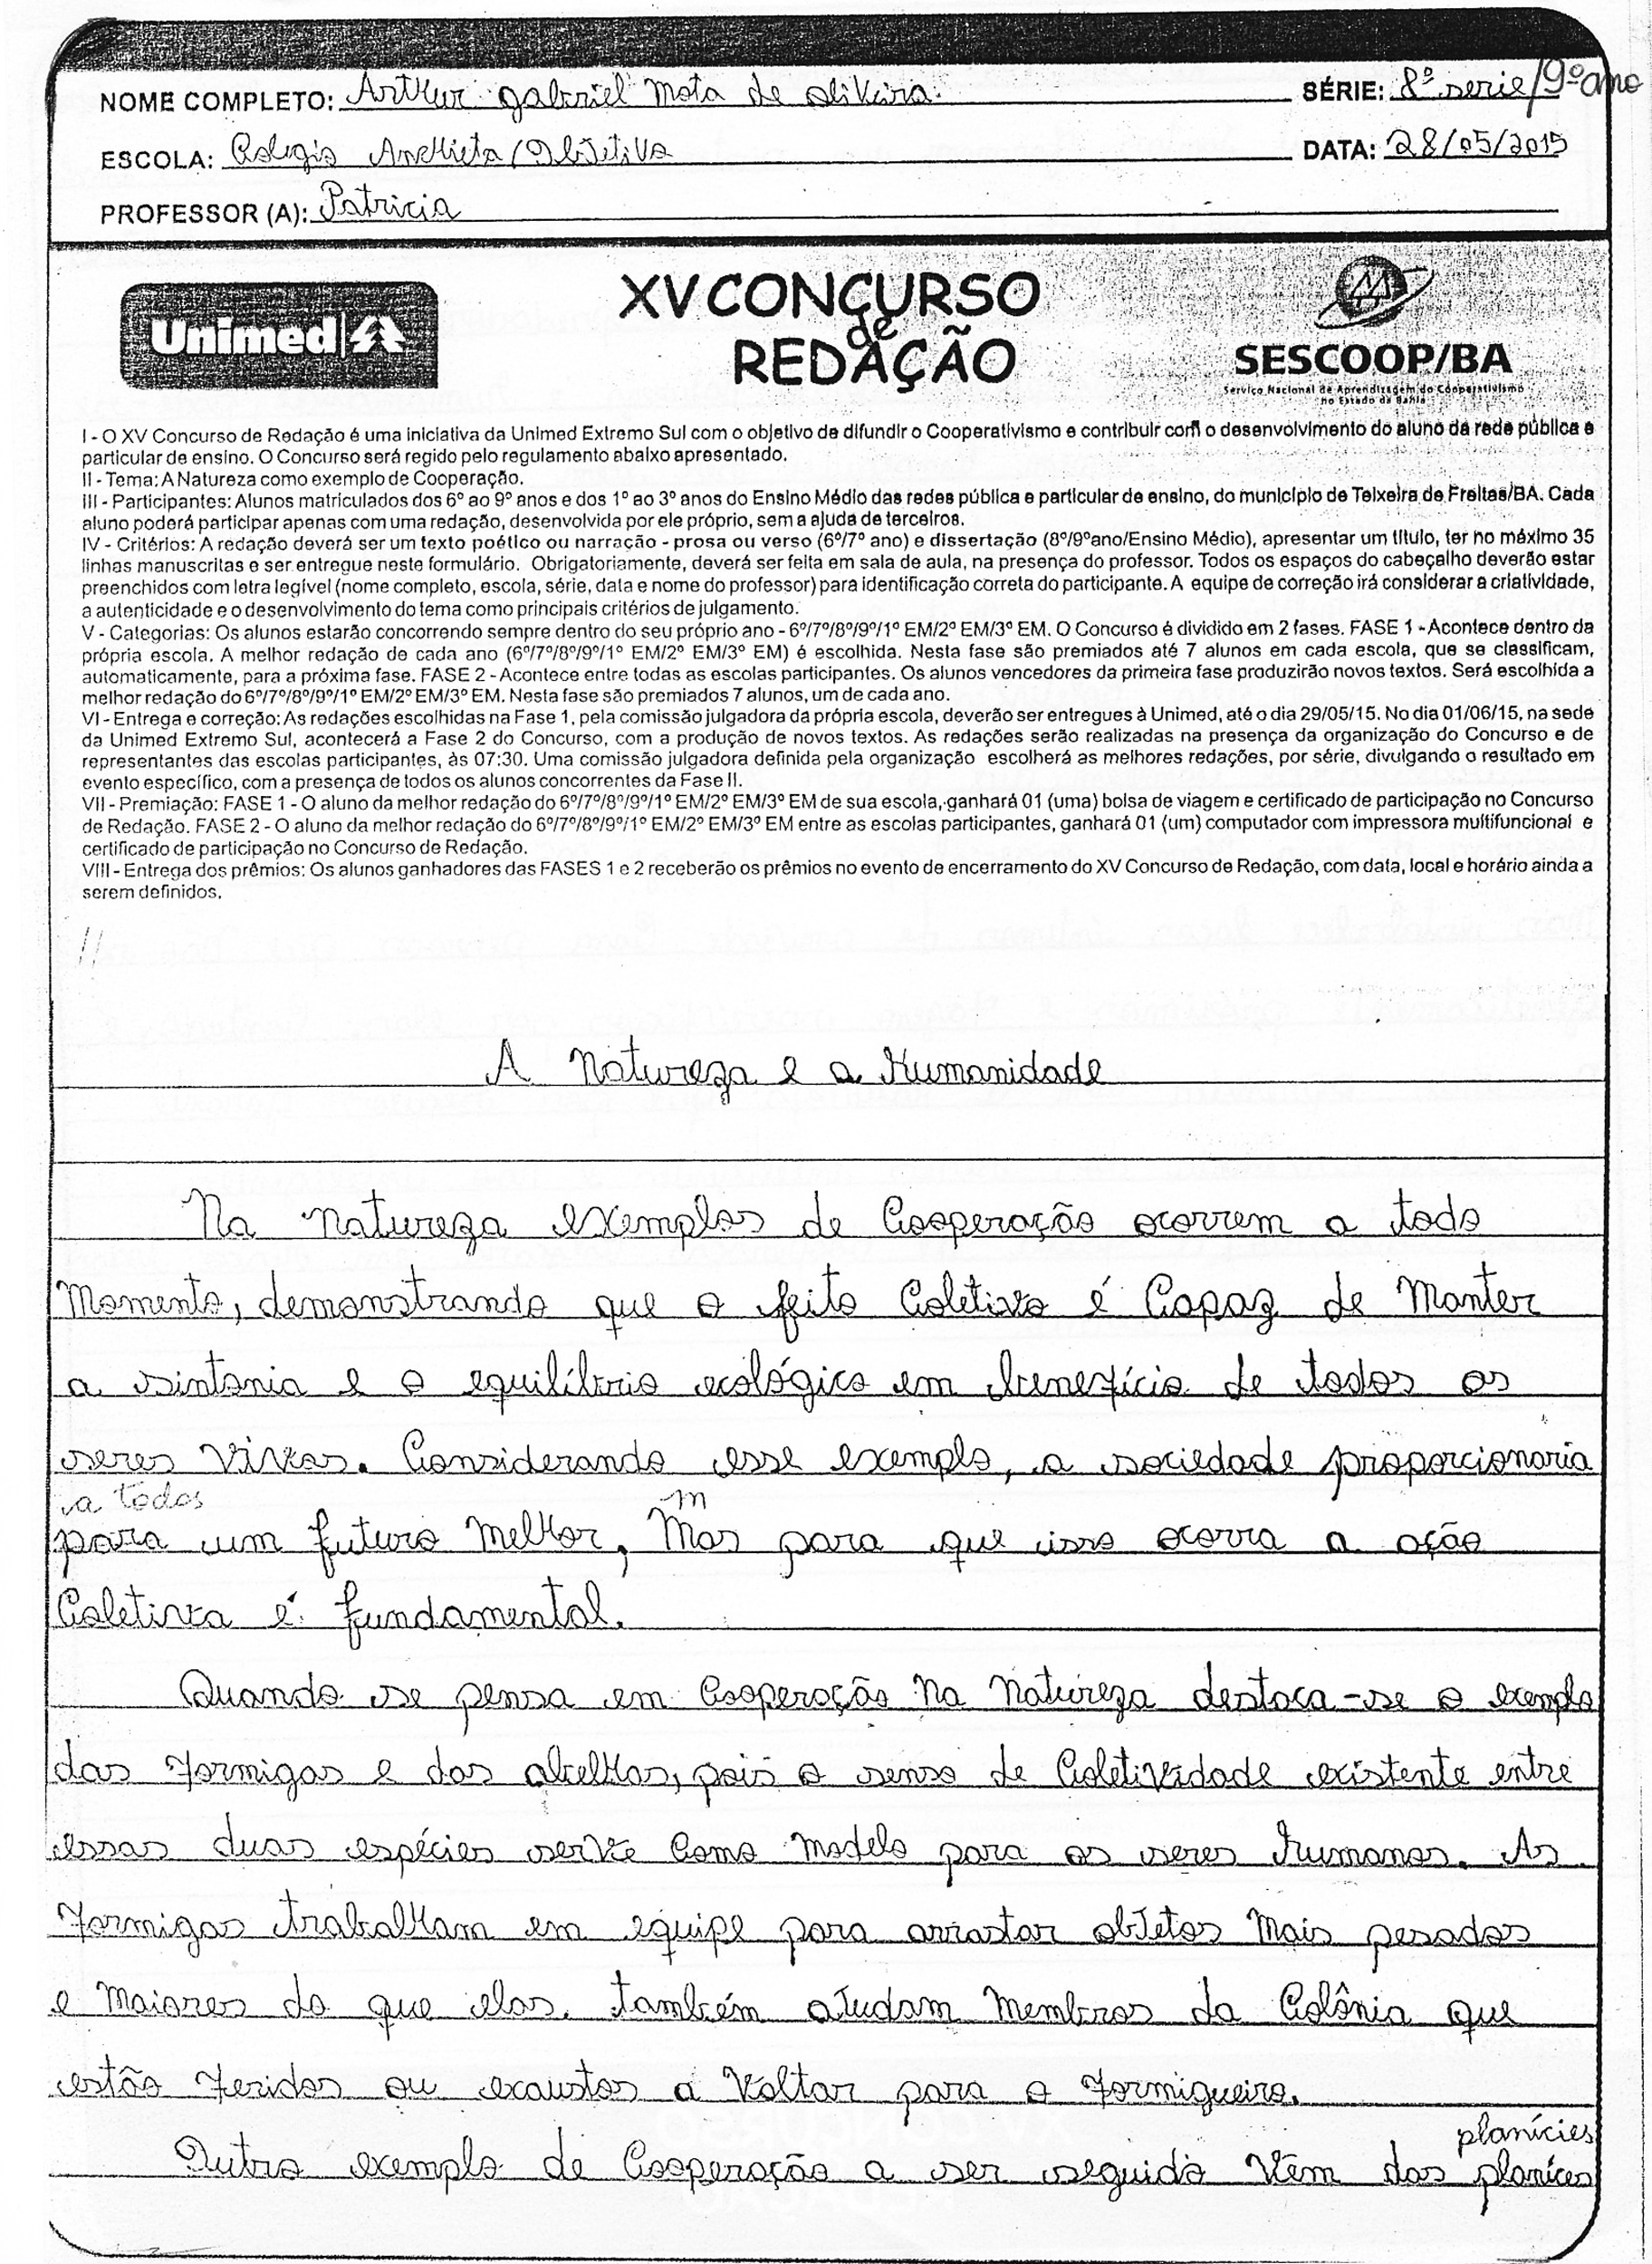 NOME COMPLETO: Arthur gabriel mota de oliveira SÉRIE: 8ª serie/9º ano
ESCOLA: Colegio Anchieta/Objetivo DATA: 28/05/2015
PROFESSOR (A): Patricia
Unimed
XV CONCURSO
de
REDAÇÃO
SESCOOP/BA
Serviço Nacional de Aprendizagem do Cooperativismo
no Estado da Bahia
I - O XV Concurso de Redação é uma iniciativa da Unimed Extremo Sul com o objetivo de difundir o Cooperativismo e contribuir com o desenvolvimento do aluno da rede pública e
particular de ensino. O Concurso será regido pelo regulamento abaixo apresentado.
II - Tema: A Natureza como exemplo de Cooperação.
III - Participantes: Alunos matriculados dos 6º ao 9º anos e dos 1º ao 3º anos do Ensino Médio das redes pública e particular de ensino, do município de Teixeira de Freitas/BA. Cada
aluno poderá participar apenas com uma redação, desenvolvida por ele próprio, sem a ajuda de terceiros.
IV - Critérios: A redação deverá ser um texto poético ou narração - prosa ou verso (6º/7º ano) e dissertação (8º/9ºano/Ensino Médio), apresentar um título, ter no máximo 35
linhas manuscritas e ser entregue neste formulário. Obrigatoriamente, deverá ser feita em sala de aula, na presença do professor. Todos os espaços do cabeçalho deverão estar
preenchidos com letra legível (nome completo, escola, série, data e nome do professor) para identificação correta do participante. A equipe de correção irá considerar a criatividade,
a autenticidade e o desenvolvimento do tema como principais critérios de julgamento.
V - Categorias: Os alunos estarão concorrendo sempre dentro do seu próprio ano - 6º/7º/8º/9º/1º EM/2º EM/3º EM. O Concurso é dividido em 2 fases. FASE 1 - Acontece dentro da
própria escola. A melhor redação de cada ano (6º/7º/8º/9º/1º EM/2º EM/3º EM) é escolhida. Nesta fase são premiados até 7 alunos em cada escola, que se classificam,
automaticamente, para a próxima fase. FASE 2 - Acontece entre todas as escolas participantes. Os alunos vencedores da primeira fase produzirão novos textos. Será escolhida a
melhor redação do 6º/7º/8º/9º/1º EM/2º EM/3º EM. Nesta fase são premiados 7 alunos, um de cada ano.
VI - Entrega e correção: As redações escolhidas na Fase 1, pela comissão julgadora da própria escola, deverão ser entregues à Unimed, até o dia 29/05/15. No dia 01/06/15, na sede
da Unimed Extremo Sul, acontecerá a Fase 2 do Concurso, com a produção de novos textos. As redações serão realizadas na presença da organização do Concurso e de
representantes das escolas participantes, às 07:30. Uma comissão julgadora definida pela organização escolherá as melhores redações, por série, divulgando o resultado em
evento específico, com a presença de todos os alunos concorrentes da Fase II.
VII - Premiação: FASE 1 - O aluno da melhor redação do 6º/7º/8º/9º/1º EM/2º EM/3º EM de sua escola, ganhará 01 (uma) bolsa de viagem e certificado de participação no Concurso
de Redação. FASE 2 - O aluno da melhor redação do 6º/7º/8º/9º/1º EM/2º EM/3º EM entre as escolas participantes, ganhará 01 (um) computador com impressora multifuncional e
certificado de participação no Concurso de Redação.
VIII - Entrega dos prêmios: Os alunos ganhadores das FASES 1 e 2 receberão os prêmios no evento de encerramento do XV Concurso de Redação, com data, local e horário ainda a
serem definidos.
A Natureza e a Humanidade
Na natureza exemplos de Cooperação ocorrem a todo
Momento, demonstrando que o feito Coletivo é Capaz de Manter
a sintonia e o equilíbrio ecológico em benefício de todos os
seres vivos. Considerando esse exemplo, a sociedade proporcionaria
a todos m
para um futuro Melhor, Mas para que isso ocorra a ação
Coletiva é fundamental.
Quando se pensa em Cooperação na natureza destaca-se o exemplo
das formigas e das abelhas, pois o senso de Coletividade existente entre
essas duas espécies serve Como modelo para os seres humanos. As
formigas trabalham em equipe para arrastar objetos mais pesados
e maiores do que elas. também ajudam membros da Colônia que
estão feridos ou exaustos a voltar para o formigueiro.
planícies
Outro exemplo de Cooperação a ser seguido vêm das planíces